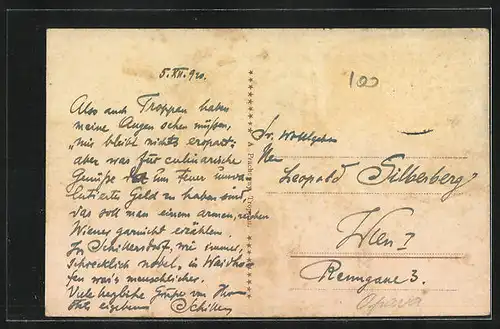 5. XII. 920.
Also auch Troppau haben
meine Augen sehen müßen,
„mir bleibt nichts erspart";
aber was für culinarische
Genüße um Teuer
Geld zu haben sind,
das soll man einem armen, reichen
Wiener garnicht erzählen.
In Schikersdorf, wie immer,
schrecklich nobel, in Waidho-
fen war's menschlicher.
Viele herzliche Grüße von
100
Sr. Wohlgeboren
Herrn
Leopold Silberberg
Wien I
Renngasse 3.